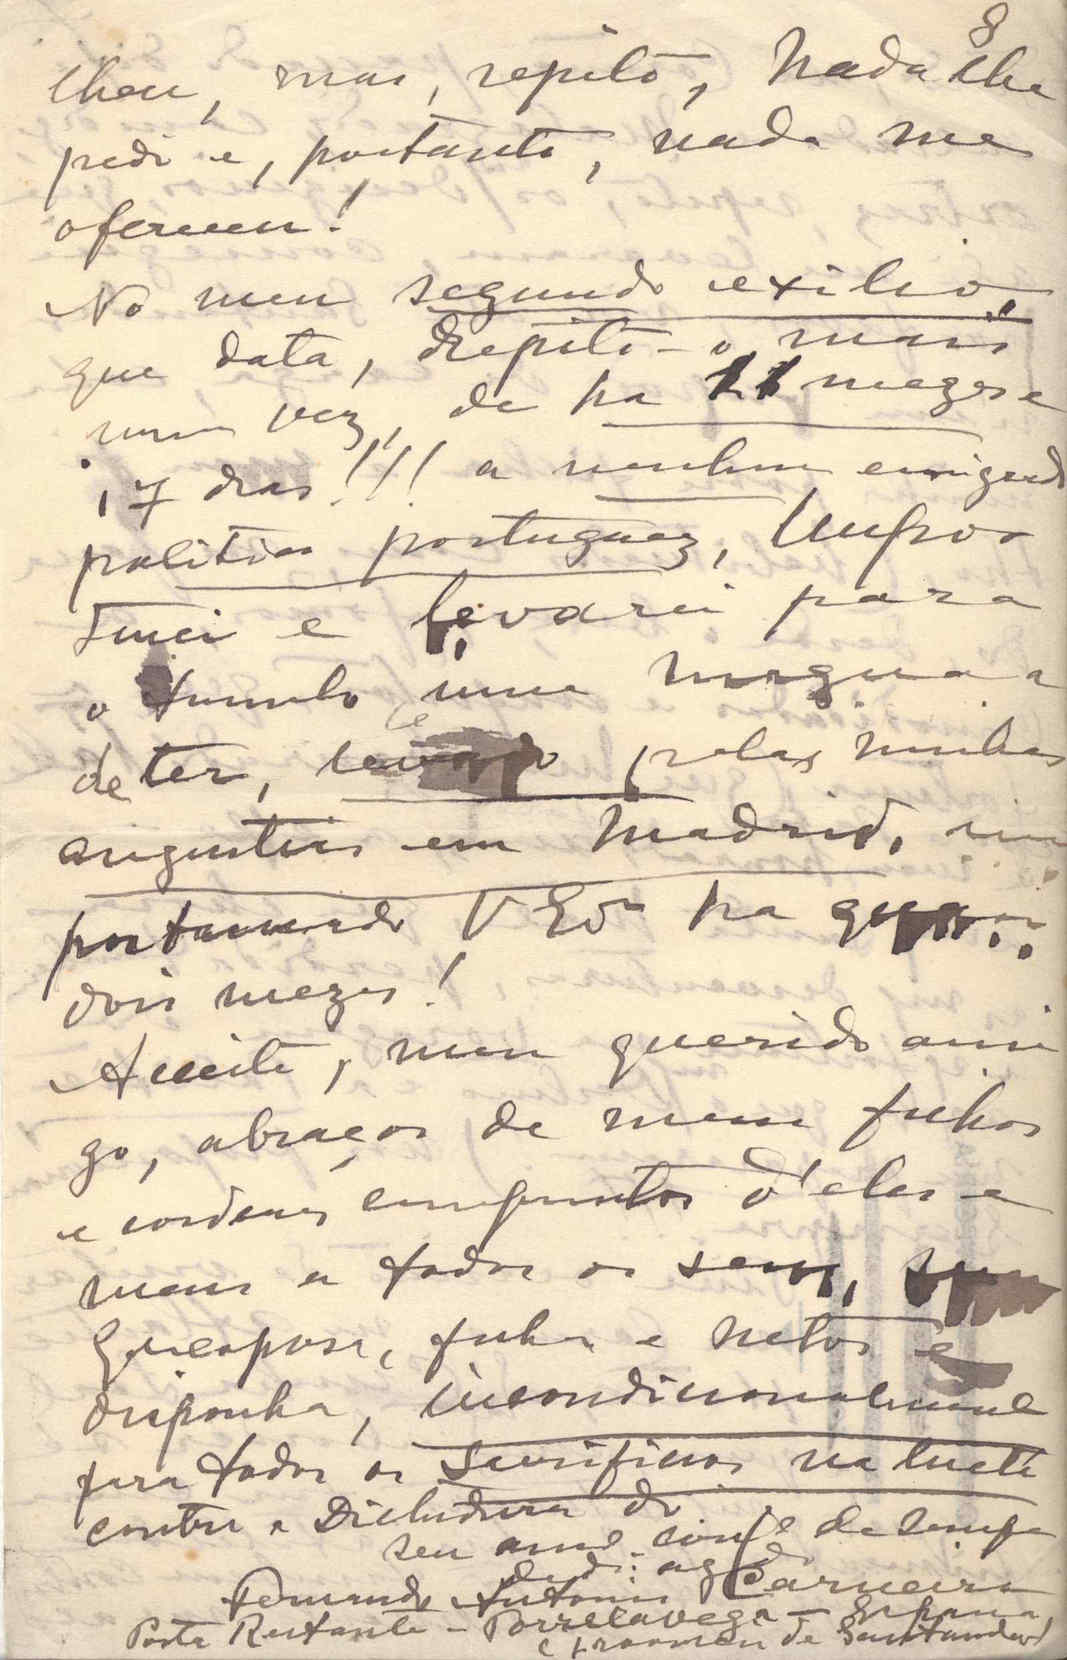 8
lheu, mas, repito, nada lhe
pedi e, portanto, nada me
ofereceu!
No meu segundo exilio,
que data, repito-o mais
uma vez, de ha 11 mezes e
17 dias!!! a nenhum emigrado
politico portuguez,
e levarei para
o tumulo uma magua a
de ter, levado pelas minhas
angustias em Madrid, im
portunado V Exª ha
dois mezes!
Aceite, meu querido ami
go, abraços de meus filhos
e cordeaes cumprimentos d'elas e
meus a todos os seus, sua
Exma esposa, filha e netos e
disponha, incondicionalmente
para todos os sacrificios na lucta
contra a Dictadura do
seu amo
Fernando Antonio Carneiro
Posta Restante - Torrelavega - Espana,
de Santander)